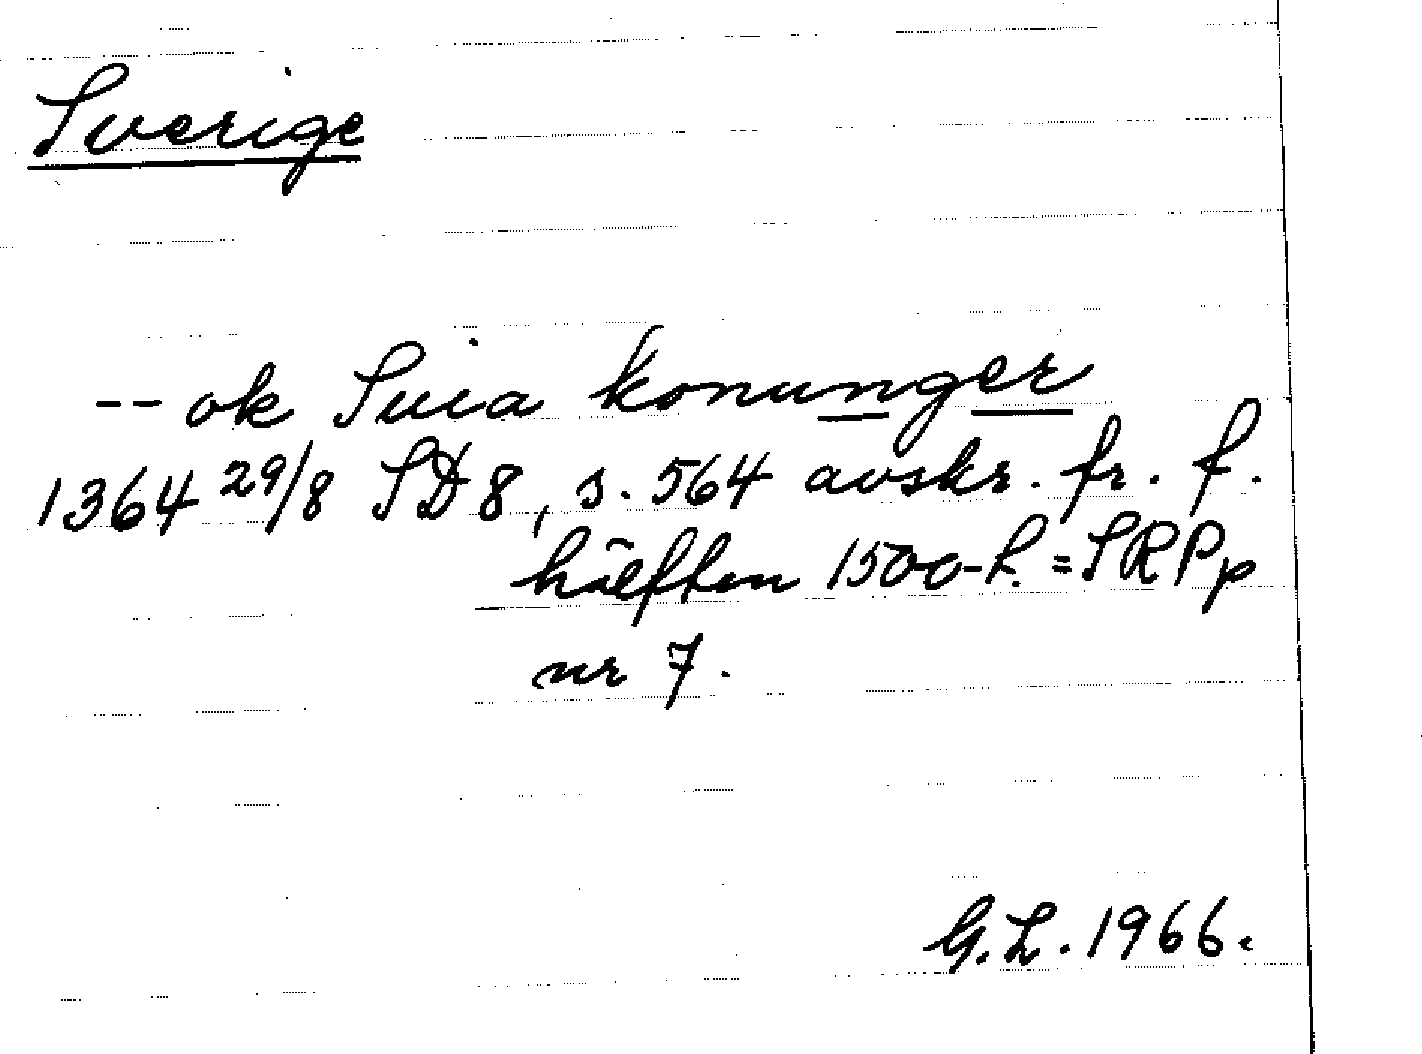 Sverige
-- ok Suia konunger
1364 29/8 SD 8, s. 564 avskr. fr. f.
hälften 1500-t. = SRPp
nr 7.
G.L. 1966.